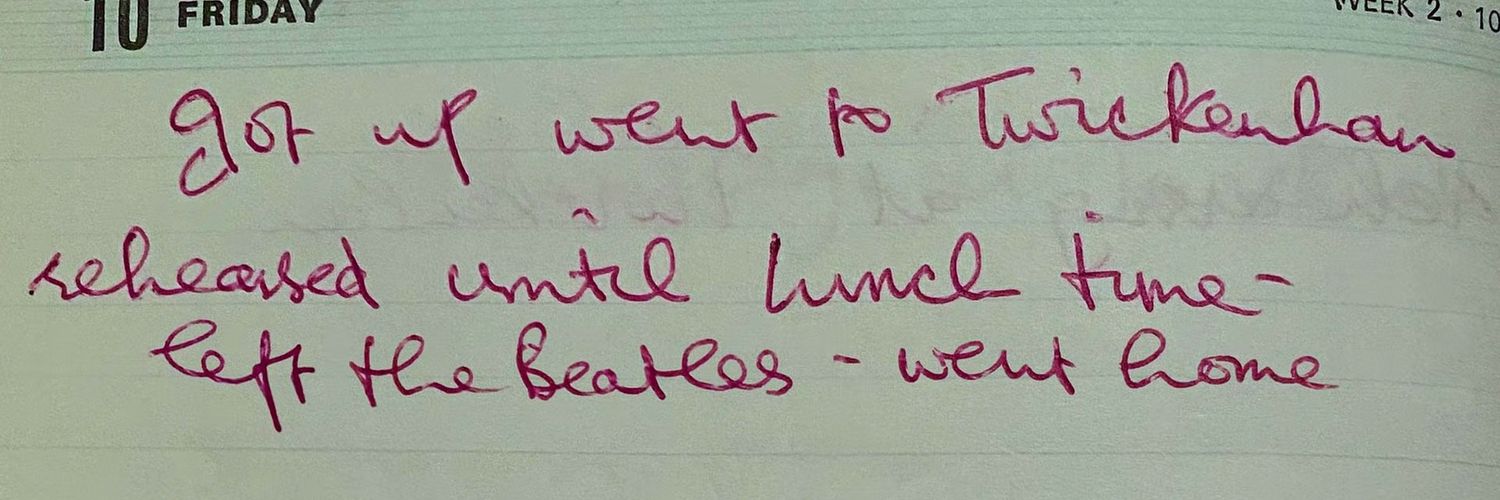 10 FRIDAY WEEK 2 • 10
got up went to Twickenham
rehearsed until lunch time -
left the Beatles - went home